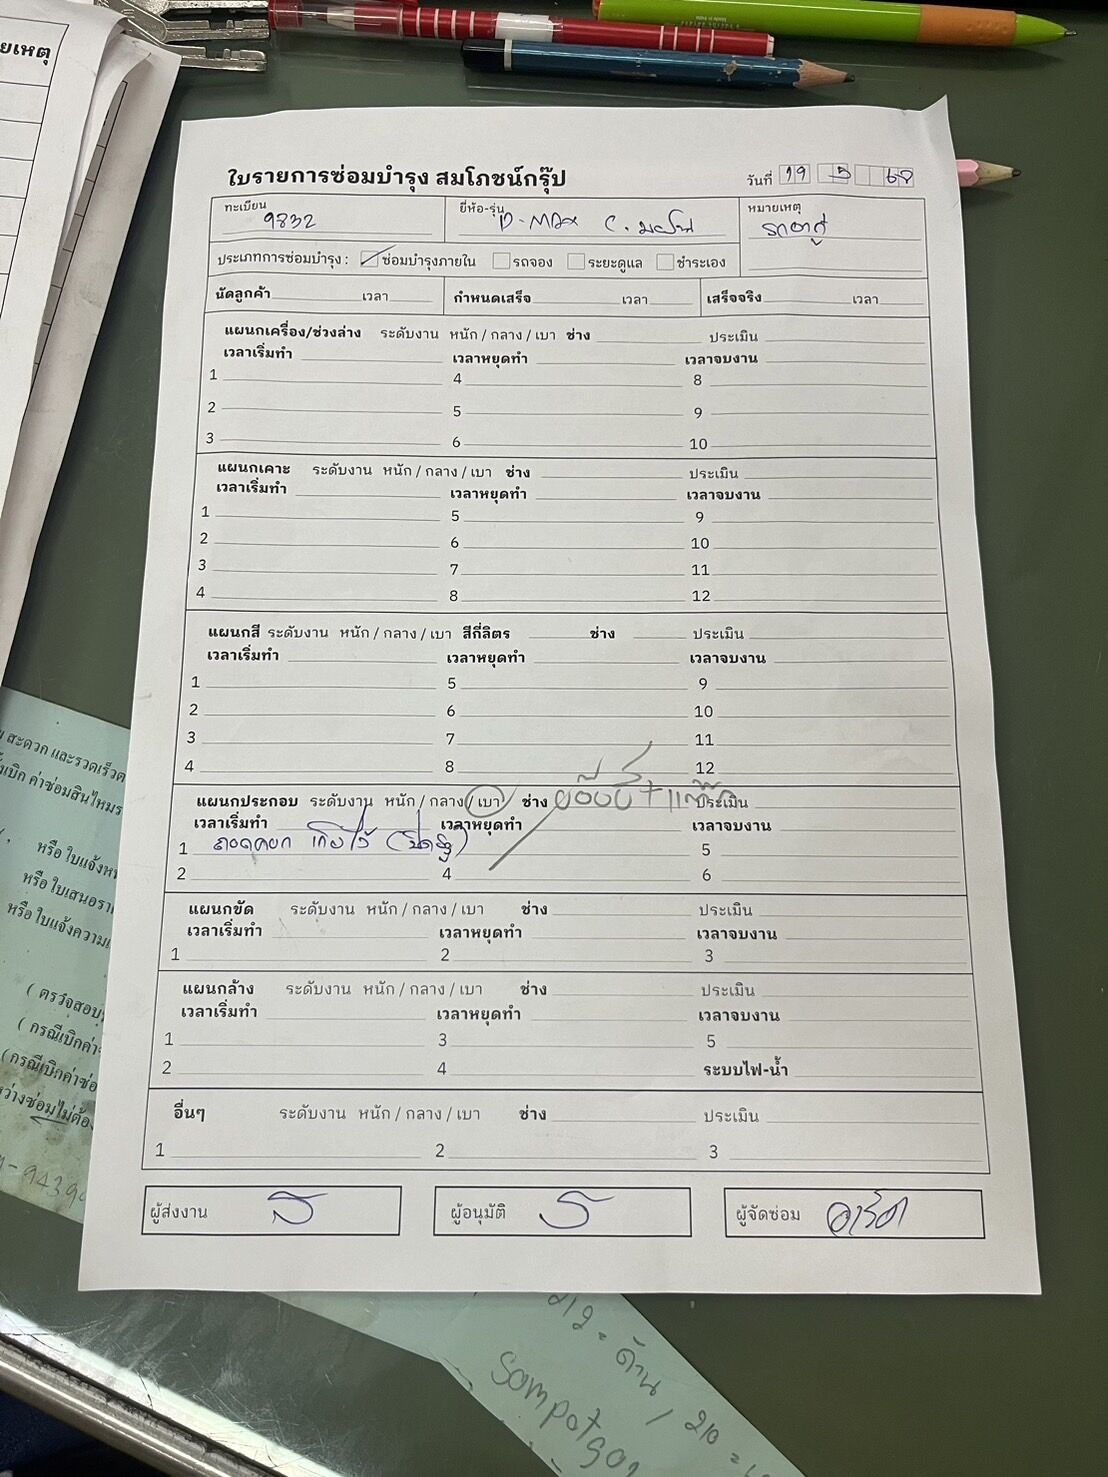 ยเหตุ
ใบรายการซ่อมบำรุง สมโภชน์กรุ๊ป
วันที่ 19 5 68
ทะเบียน 9832
ยี่ห้อ-รุ่น D-MAX
หมายเหตุ
ประเภทการซ่อมบำรุง : ซ่อมบำรุงภายใน รถจอง ระยะดูแล ชำระเอง
นัดลูกค้า เวลา กำหนดเสร็จ เวลา เสร็จจริง เวลา
แผนกเครื่อง/ช่วงล่าง ระดับงาน หนัก / กลาง / เบา ช่าง ประเมิน
เวลาเริ่มทำ เวลาหยุดทำ เวลาจบงาน
1 4 8
2 5 9
3 6 10
แผนกเคาะ ระดับงาน หนัก / กลาง / เบา ช่าง ประเมิน
เวลาเริ่มทำ เวลาหยุดทำ เวลาจบงาน
1 5 9
2 6 10
3 7 11
4 8 12
แผนกสี ระดับงาน หนัก / กลาง / เบา สีกี่ลิตร ช่าง ประเมิน
เวลาเริ่มทำ เวลาหยุดทำ เวลาจบงาน
1 5 9
2 6 10
3 7 11
4 8 12
แผนกประกอบ ระดับงาน หนัก / กลาง / เบา ช่าง ประเมิน
เวลาเริ่มทำ เวลาหยุดทำ เวลาจบงาน
1 5
2 4 6
แผนกขัด ระดับงาน หนัก / กลาง / เบา ช่าง ประเมิน
เวลาเริ่มทำ เวลาหยุดทำ เวลาจบงาน
1 2 3
แผนกล้าง ระดับงาน หนัก / กลาง / เบา ช่าง ประเมิน
เวลาเริ่มทำ เวลาหยุดทำ เวลาจบงาน
1 3 5
2 4 ระบบไฟ-น้ำ
อื่นๆ ระดับงาน หนัก / กลาง / เบา ช่าง ประเมิน
1 2 3
ผู้ส่งงาน ผู้อนุมัติ ผู้จัดซ่อม
สะดวก และรวดเร็ว
เบิก ค่าซ่อมสินไหม
หรือ ใบแจ้ง
หรือ ใบเสนอรา
หรือ ใบแจ้งความ
( ตรวจสอบ
( กรณีเบิกค่า
(กรณีเบิกค่าซ่อ
ว่างซ่อมไม่ต้อง
212 = ด้าน / 210 =